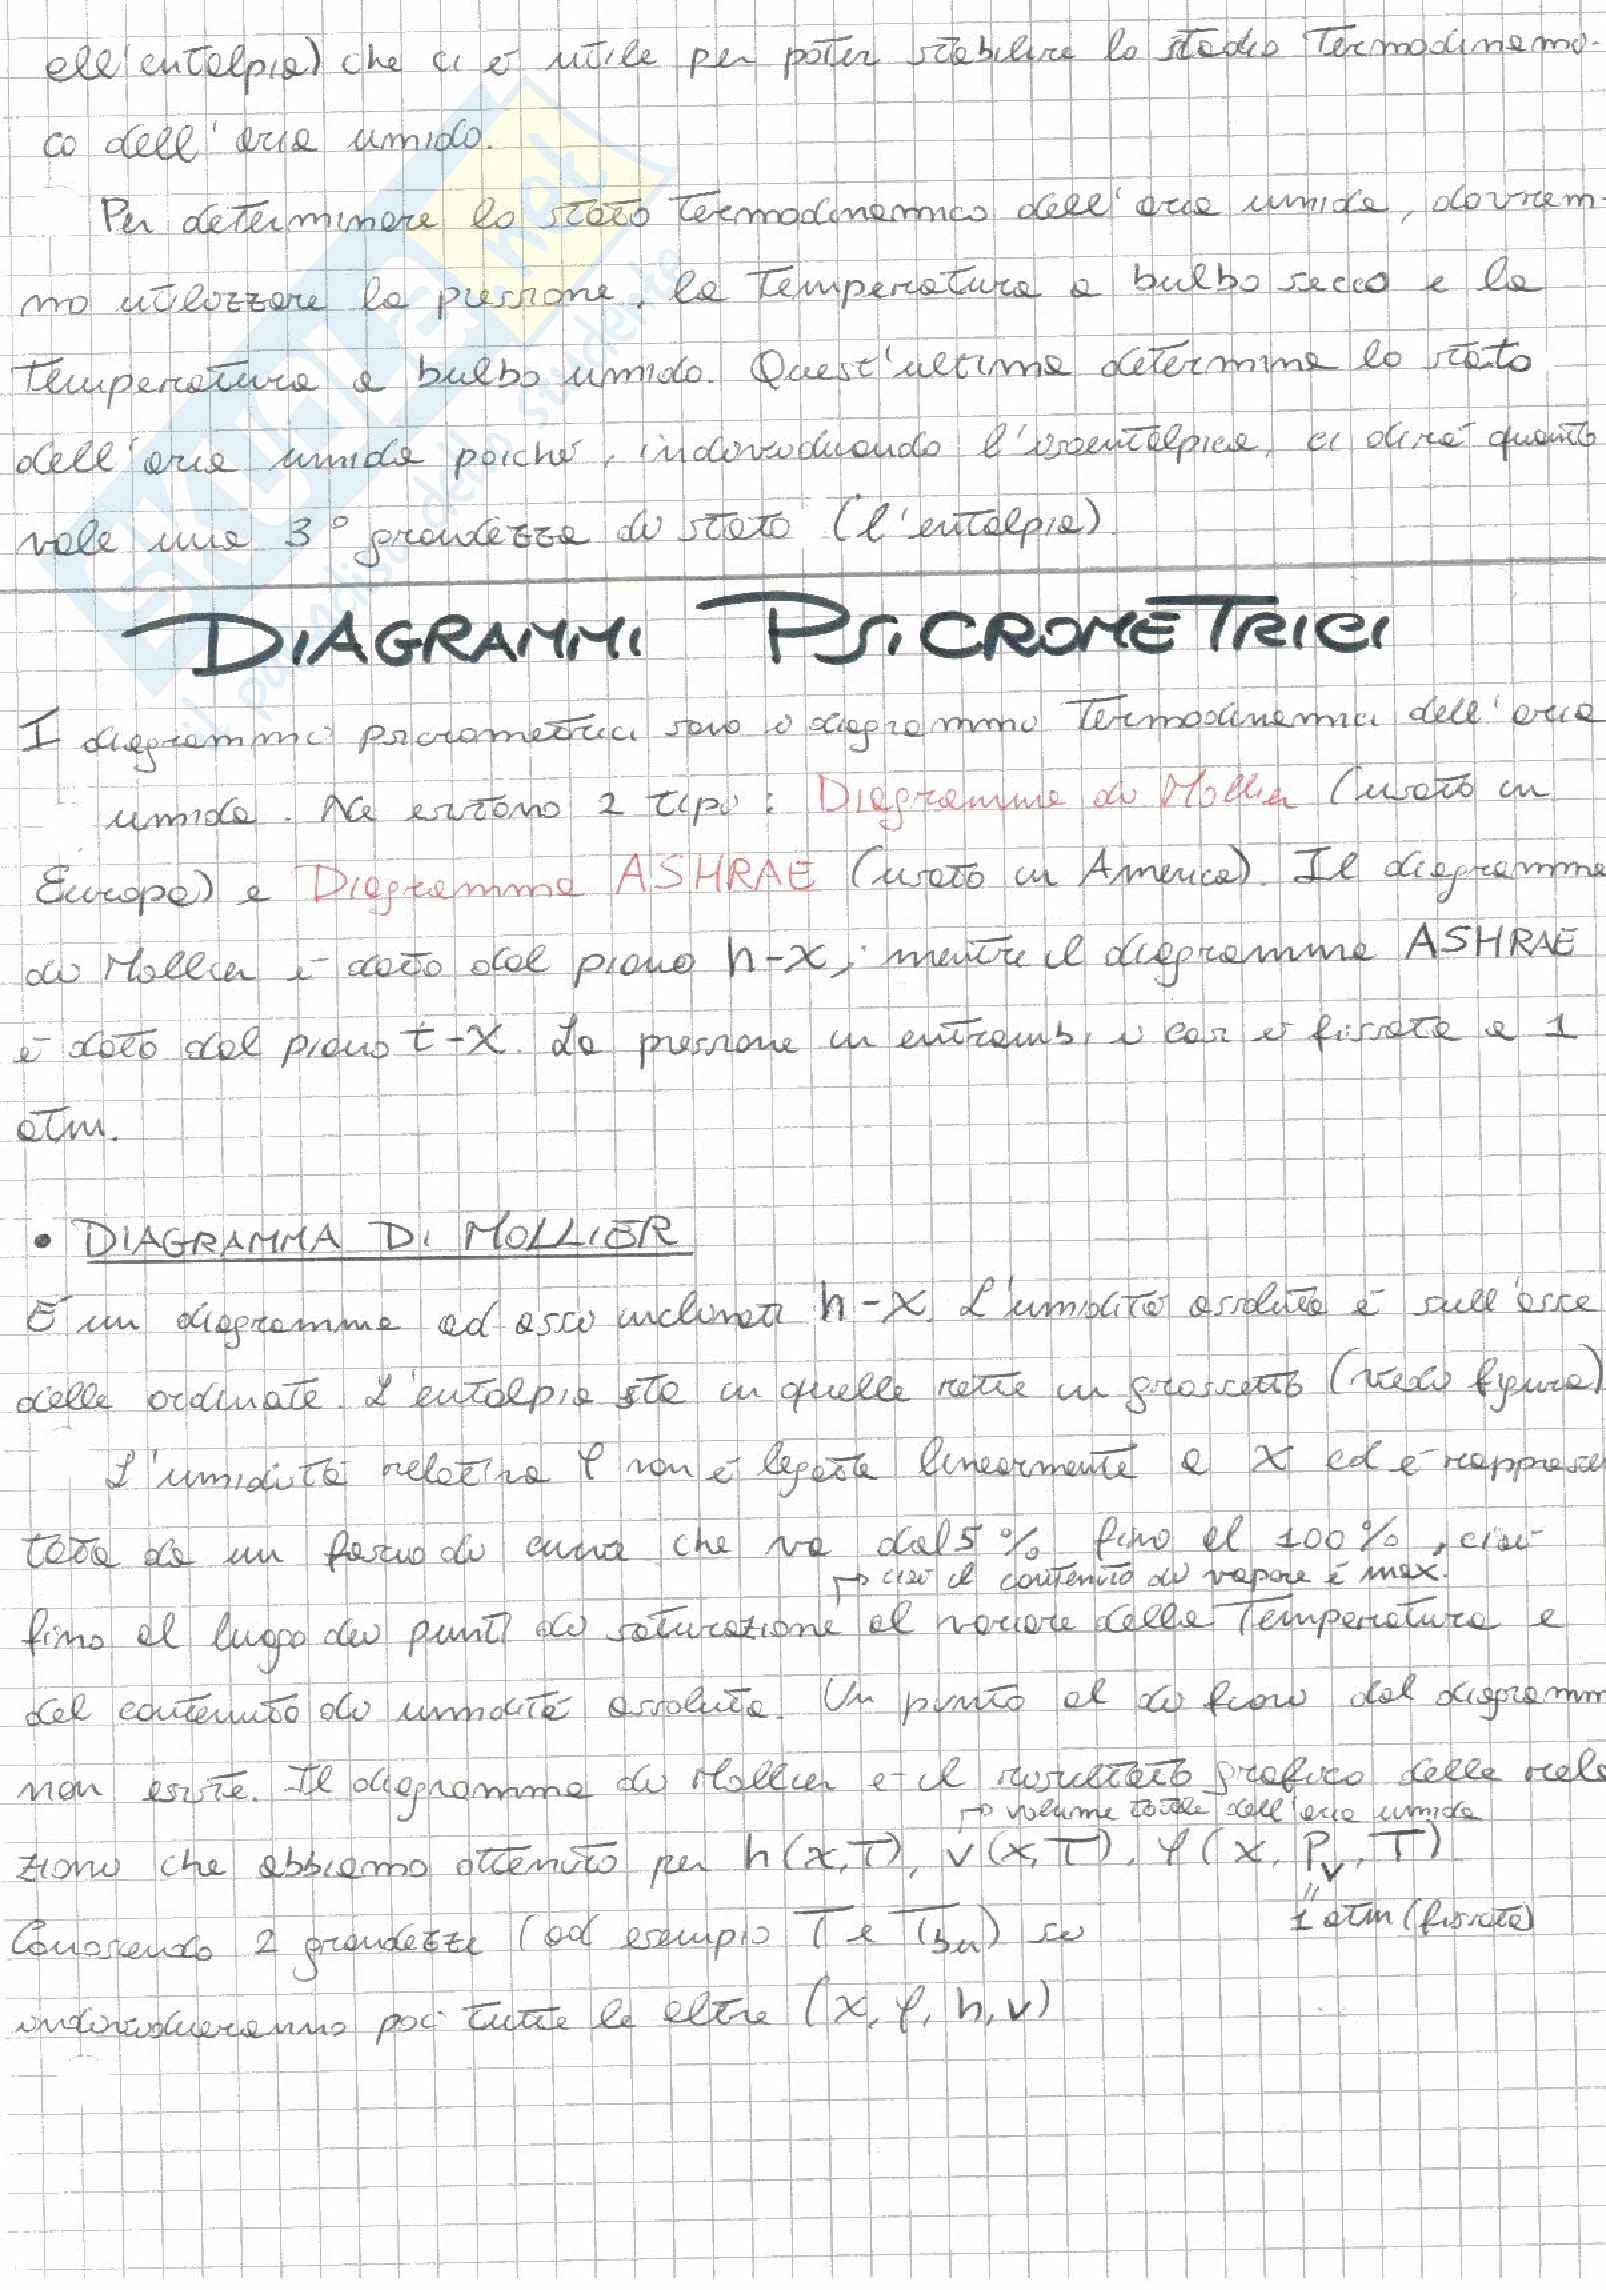 all'entalpia) che ci è utile per poter stabilire lo stadio termodinami-
co dell'aria umida.
Per determinare lo stato termodinamico dell'aria umida, dovrem-
mo utilizzare la pressione, la temperatura a bulbo secco e la
temperatura a bulbo umido. Quest'ultima determina lo stato
dell'aria umida poiché, individuando l'isoentalpica, ci dirà quanto
vale una 3° grandezza di stato (l'entalpia).
DIAGRAMMI PSICROMETRICI
I diagrammi psicrometrici sono i diagrammi termodinamici dell'aria
umida. Ne esistono 2 tipi: Diagramma di Mollier (usato in
Europa) e Diagramma ASHRAE (usato in America). Il diagramma
di Mollier è dato dal piano h-x; mentre il diagramma ASHRAE
è dato dal piano t-x. La pressione in entrambi i casi è fissata a 1
atm.
• DIAGRAMMA DI MOLLIER
È un diagramma ad assi inclinati h-x. L'umidità assoluta è sull'asse
delle ordinate. L'entalpia sta in quelle rette in grassetto (vedi figura)
L'umidità relativa φ non è legata linearmente a x ed è rappresen
tata da un fascio di curve che va dal 5% fino al 100%, cioè
↦ cioè il contenuto di vapore è max.
fino al luogo dei punti di saturazione al variare della temperatura e
del contenuto di umidità assoluta. Un punto al di fuori del diagramm
non esiste. Il diagramma di Mollier è il risultato grafico delle rela
↦ volume totale dell'aria umida
zioni che abbiamo ottenuto per h(x,T), v(x,T), φ(x, Pv, T).
" 1 atm (fissata)
Conoscendo 2 grandezze (ad esempio T e Tbu) si
individueranno poi tutte le altre (x, φ, h, v)
SKUOLA.net
il paradiso dello studente